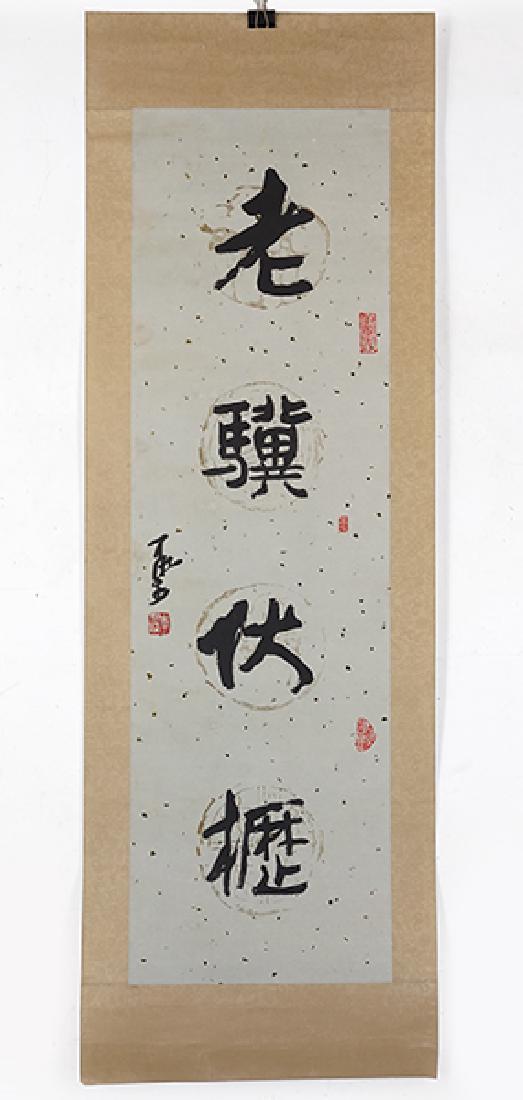 老
驥
伏
櫪